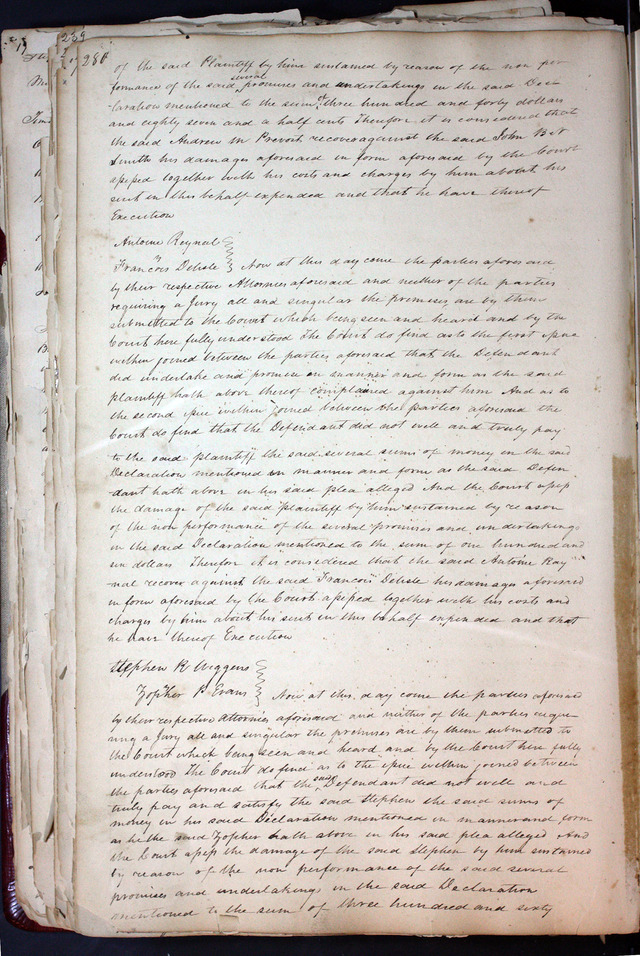 280
of the said Plaintiff by him sustained by reason of the non per
formance of the said several promises and undertakings in the said Dec
laration mentioned to the sum of three hundred and forty dollars
and eighty seven and a half cents Therefore it is considered that
the said Andrew M Prevost recover against the said John B N
Smith his damages aforesaid in form aforesaid by the Court
assessed together with his costs and charges by him about his
suit in this behalf expended and that he have thereof
Execution
Antoine Reynal
vs
Francois Delisle Now at this day come the parties aforesaid
by their respective Attornies aforesaid and neither of the parties
requiring a Jury all and singular the premises are by them
submitted to the Court which being seen and heard and by the
Court here fully understood The Court do find as to the first issue
within joined between the parties aforesaid that the Defendant
did undertake and promise in manner and form as the said
plaintiff hath above thereof complained against him And as to
the second issue within joined between the parties aforesaid the
Court do find that the Defendant did not well and truly pay
to the said plaintiff the said several sums of money in the said
Declaration mentioned in manner and form as the said Defen
dant hath above in his said plea alleged And the Court assess
the damage of the said plaintiff by him sustained by reason
of the non performance of the several promises and undertakings
in the said Declaration mentioned to the sum of one hundred and
un dollars Therefore it is considered that the said Antoine Ray
nal recover against the said Francois Delisle his damages aforesaid
in form aforesaid by the Court assessed together with his costs and
charges by him about his suit in this behalf expended and that
he have thereof Execution
Stephen R Wiggens
vs
Zopher P Evans Now at this day come the parties aforesaid
by their respective attornies aforesaid and neither of the parties requi
ring a Jury all and singular the premises are by them submitted to
the Court which being seen and heard and by the Court here fully
understood The Court do find as to the issue within joined between
the parties aforesaid that the said Defendant did not well and
truly pay and satisfy the said Stephen the said sums of
money in his said Declaration mentioned in manner and form
as he the said Zopher hath above in his said plea alleged And
the Court assess the damage of the said Stephen by him sustained
by reason of the non performance of the said several
promises and undertakings in the said Declaration
mentioned to the sum of three hundred and sixty